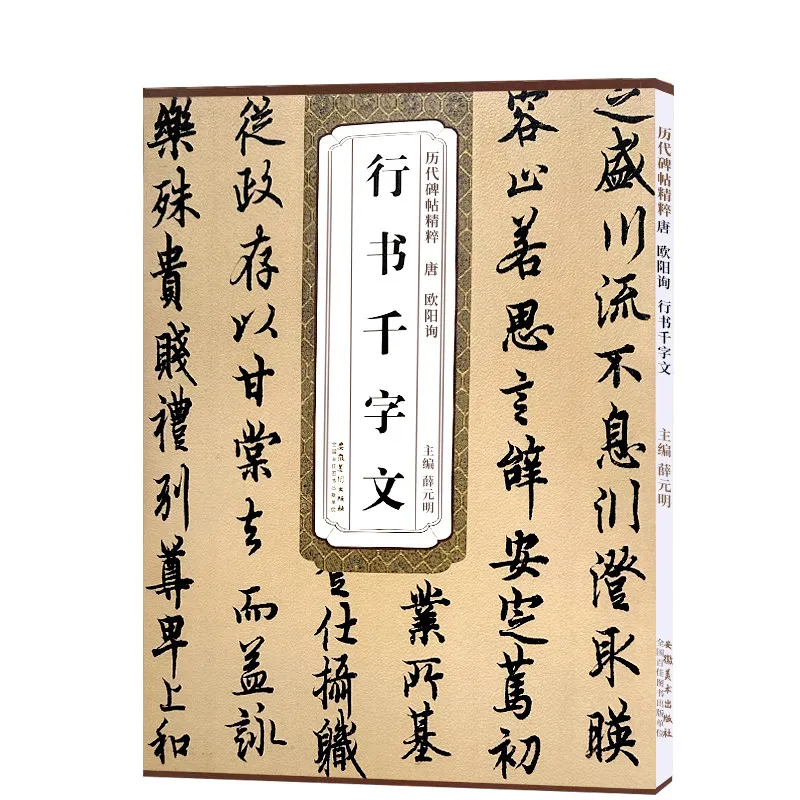 历代碑帖精粹 唐 欧阳询 行书千字文 主编 薛元明
安徽美术出版社
全国百佳图书出版单位
之盛川流不息淵澄取暎
容止若思言辭安定篤初
業所基
历代碑帖精粹 唐 欧阳询 主编 薛元明
行书千字文
安徽美术出版社
全国百佳图书出版单位
登仕攝職
從政存以甘棠去而益詠
樂殊貴賤禮別尊卑上和